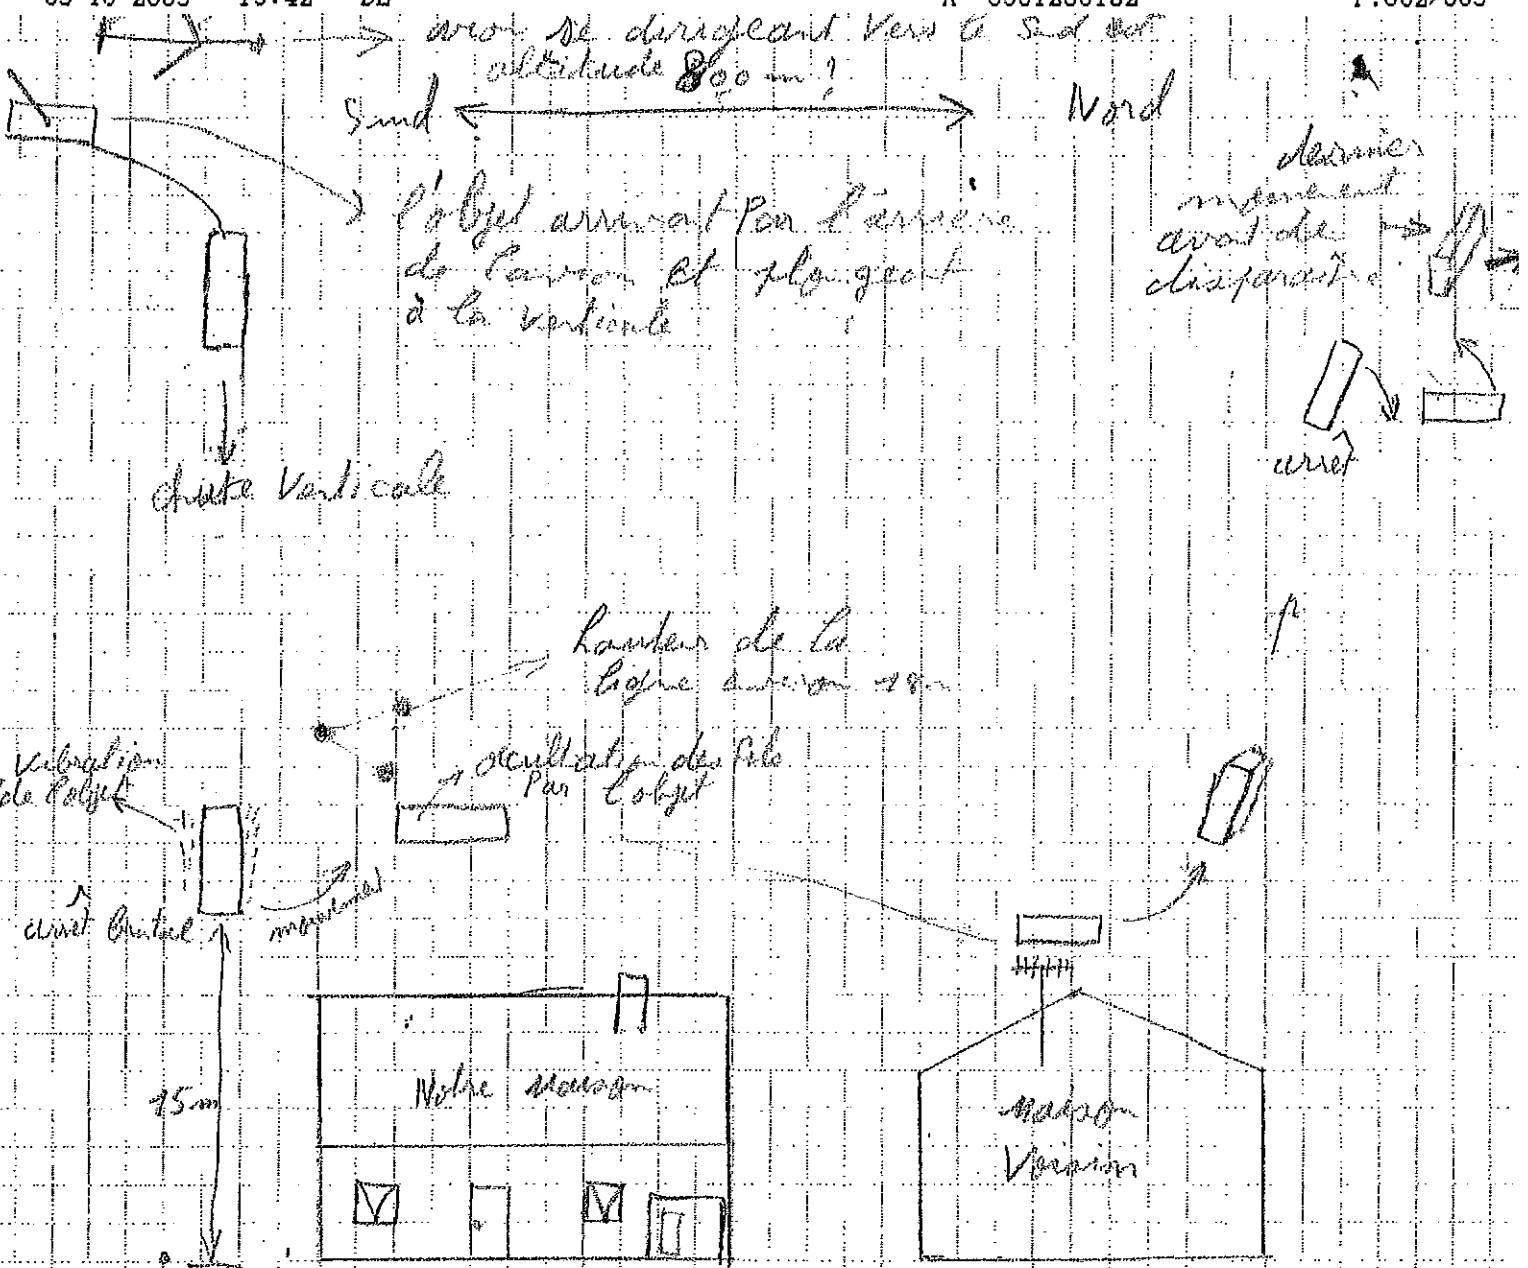 avion se dirigeant vers le Sud est
altitude 800 m ?
Sud
Nord
l'objet arrivant Par l'arrière
de l'avion et plongeant
à la verticale
dernier
moment
avant de
disparaître
arrêt
chute Verticale
hauteur de la
ligne environ 18m
occultation des fils
Par l'objet
vibration
de l'objet
arrêt brutal
mouvement
15m
Notre maison
maison
Voisin